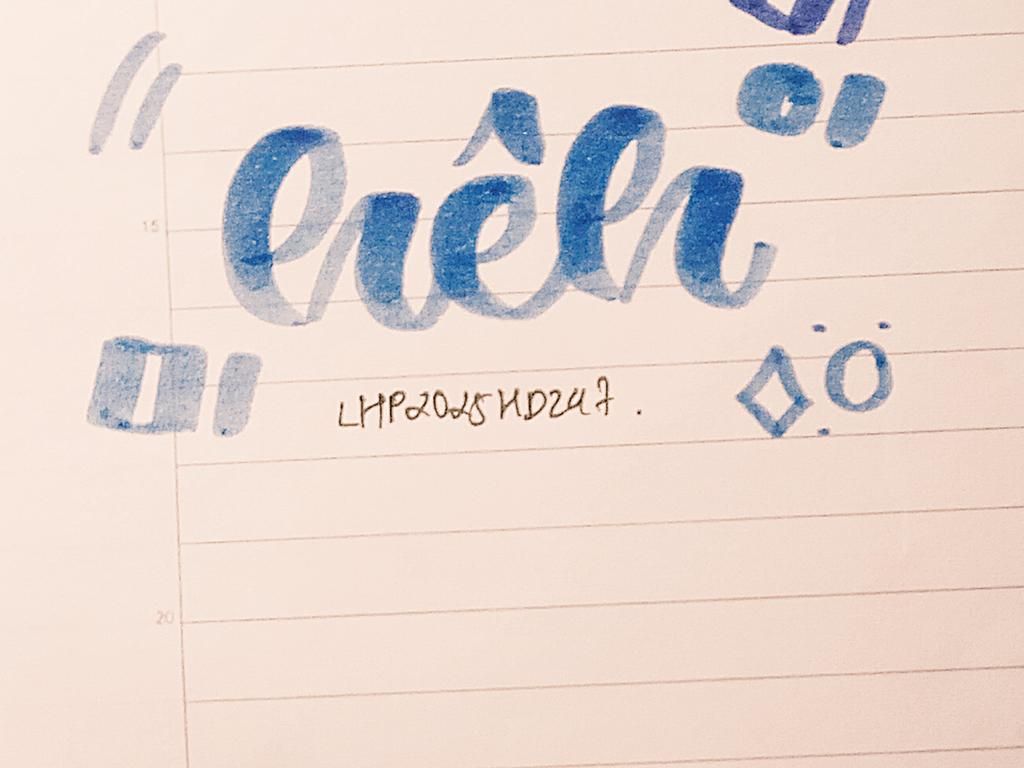 hêh
15
LHP2025HD247.
20